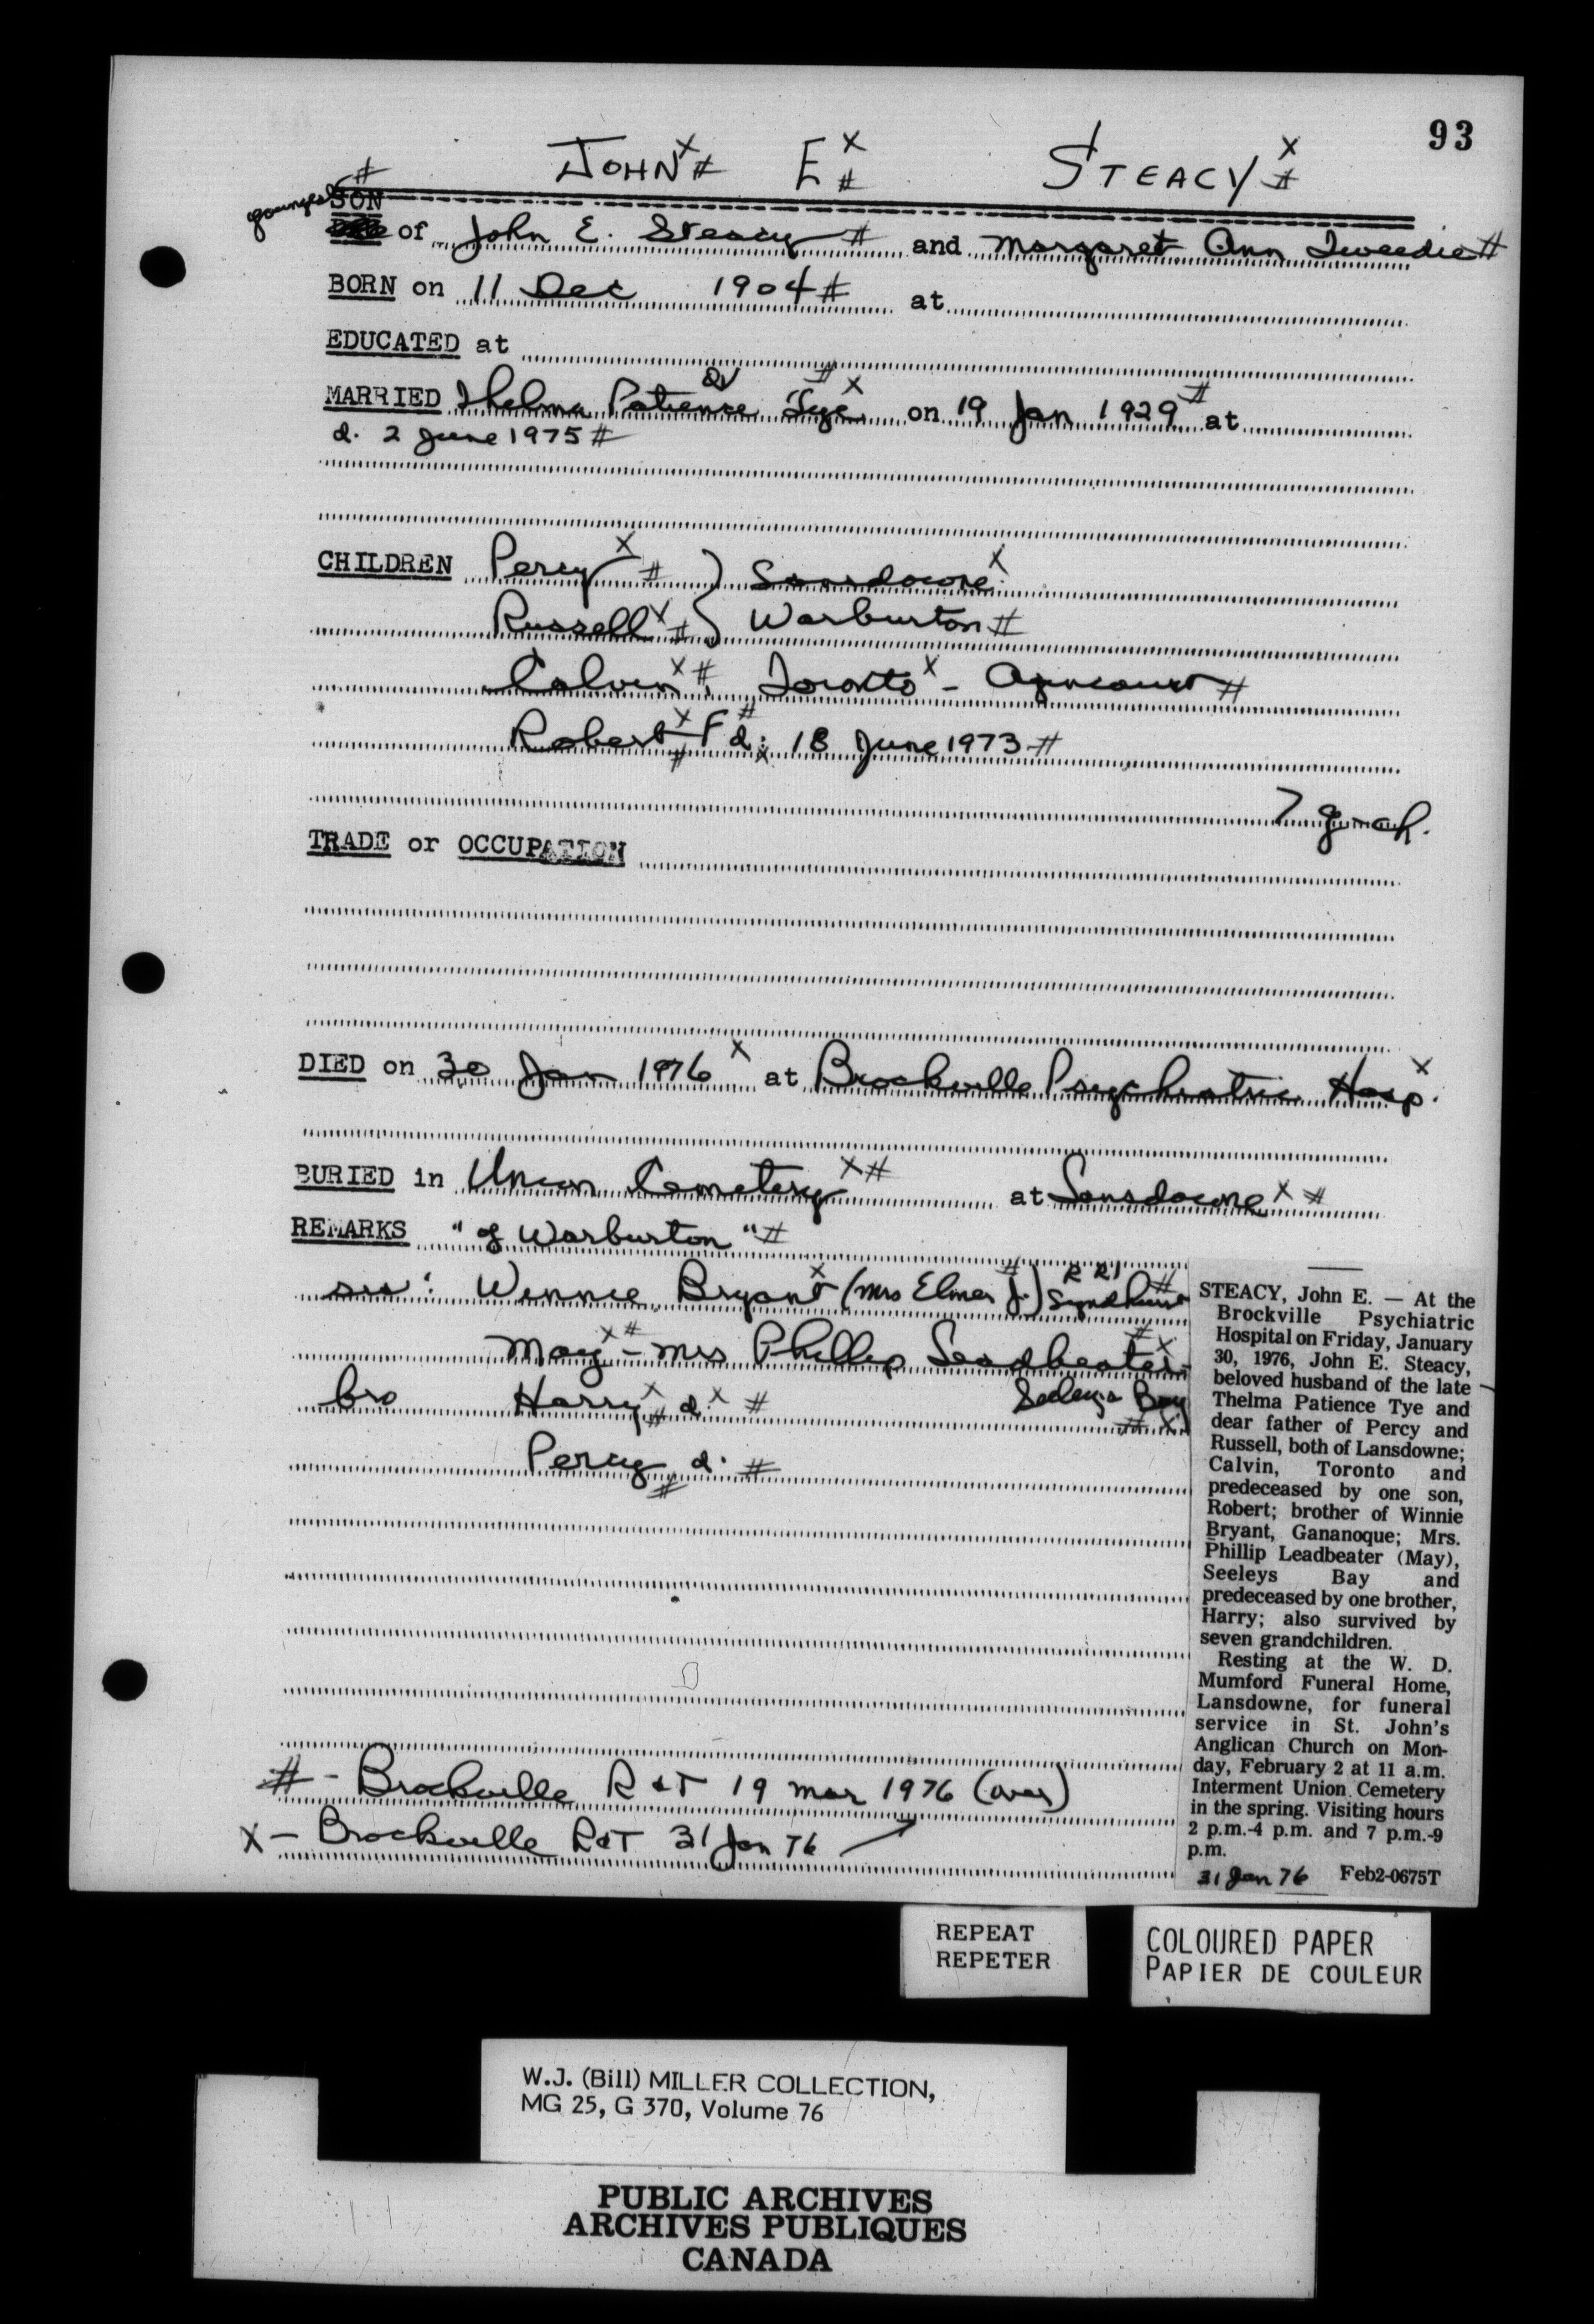 93
JOHN x # E x # STEACY x #
youngest # SON
of John E. Steacy # and Margaret Ann Tweedie #
BORN on 11 Dec 1904 # at
EDUCATED at
MARRIED Thelma Patience Tye # x on 19 Jan 1929 # at
d. 2 June 1975 #
CHILDREN Percy x # } Lansdowne x
Russell x # } Warburton #
Calvin x #. Toronto x - Agincourt #
Robert x # F # d. x 18 June 1973 #
7 g-ch.
TRADE or OCCUPATION
DIED on 30 Jan 1976 x at Brockville Psychiatric Hosp. x
BURIED in Union Cemetery x # at Lansdowne x #
REMARKS "of Warburton" #
sis: Winnie Bryant x (Mrs Elmer J.) # R R 1 Lyndhurst #
May x # - Mrs Phillip Leadbeater # x
Seeleys Bay # x
bro Harry x # d. x #
Percy # d. #
# - Brockville R & T 19 Mar 1976 (over)
x - Brockville R&T 31 Jan 76
STEACY, John E. — At the
Brockville Psychiatric
Hospital on Friday, January
30, 1976, John E. Steacy,
beloved husband of the late
Thelma Patience Tye and
dear father of Percy and
Russell, both of Lansdowne;
Calvin, Toronto and
predeceased by one son,
Robert; brother of Winnie
Bryant, Gananoque; Mrs.
Phillip Leadbeater (May),
Seeleys Bay and
predeceased by one brother,
Harry; also survived by
seven grandchildren.
Resting at the W. D.
Mumford Funeral Home,
Lansdowne, for funeral
service in St. John's
Anglican Church on Mon-
day, February 2 at 11 a.m.
Interment Union Cemetery
in the spring. Visiting hours
2 p.m.-4 p.m. and 7 p.m.-9
p.m.
31 Jan 76 Feb2-0675T
REPEAT
REPETER
COLOURED PAPER
PAPIER DE COULEUR
W.J. (Bill) MILLER COLLECTION,
MG 25, G 370, Volume 76
PUBLIC ARCHIVES
ARCHIVES PUBLIQUES
CANADA